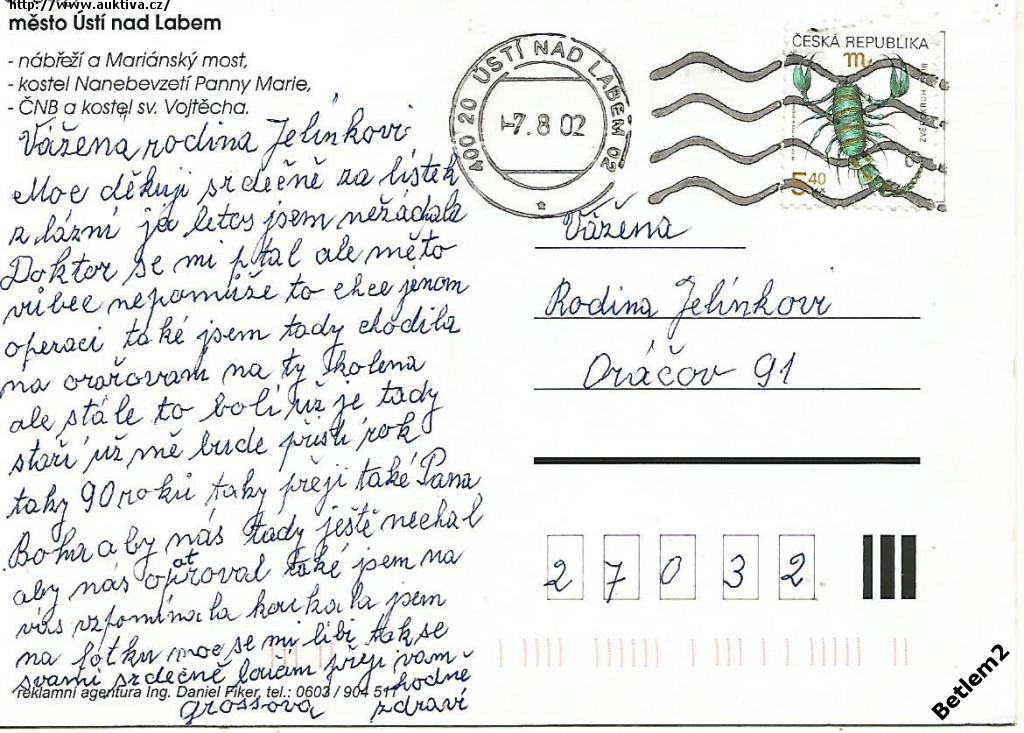 http://www.auktiva.cz/
město Ústí nad Labem
- nábřeží a Mariánský most,
- kostel Nanebevzetí Panny Marie,
- ČNB a kostel sv. Vojtěcha.
Vážena rodina Jelínkovi
Moc děkuji srdečně za lístek
z lázní já letos jsem nežádala
Doktor se mi ptal ale mě to
vůbec nepomůže to chce jenom
operaci také jsem tady chodila
na na ty kolena
ale stále to bolí už je tady
staří už mě bude příští rok
taky 90 roků taky přeji také Pana
Boha aby nás tady ještě nechal
aby nás opatroval také jsem na
vás vzpomínala koukala jsem
na fotku moc se mi libi tak se
svami srdečně loučám přeji vam
hodně
grossova zdraví
reklamní agentura Ing. Daniel Piker, tel.: 0603 / 904 511
400 20 ÚSTÍ NAD LABEM 02
-7. 8 02
ČESKÁ REPUBLIKA
ZVĚROKRUH
5 40
Vážena
Rodina Jelínkovi
Oráčov 91
27032
Betlem2